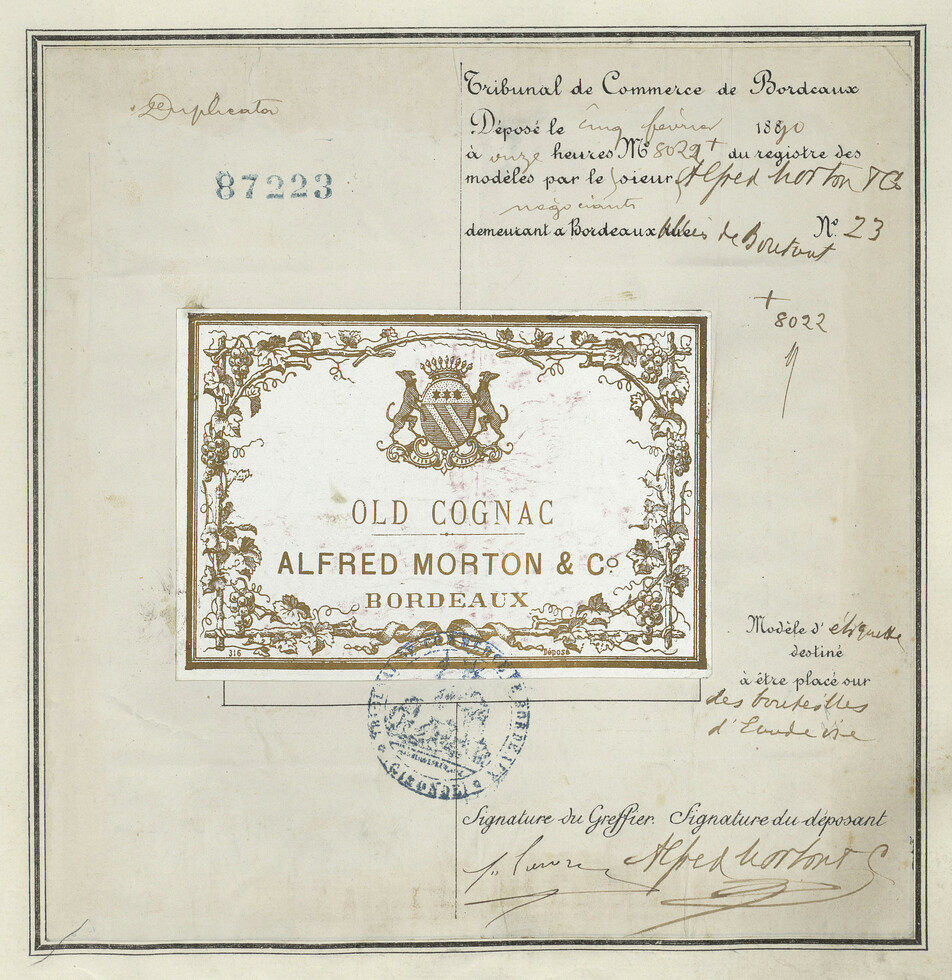 Duplicata
87223
Tribunal de Commerce de Bordeaux
Déposé le cinq février 1880
à onze heures Nº 8022+ du registre des
modèles par le sieur Alfred Morton & Co
négociants
demeurant à Bordeaux rue de Boutaut Nº 23
+
8022
OLD COGNAC
ALFRED MORTON & Co
BORDEAUX
316 Déposé
TRIBUNAL DE COMMERCE DE BORDEAUX
(GIRONDE)
Modèle d'étiquette
destiné
à être placé sur
des bouteilles
d'Eau de vie
Signature du Greffier. Signature du déposant
Alfred Morton & C